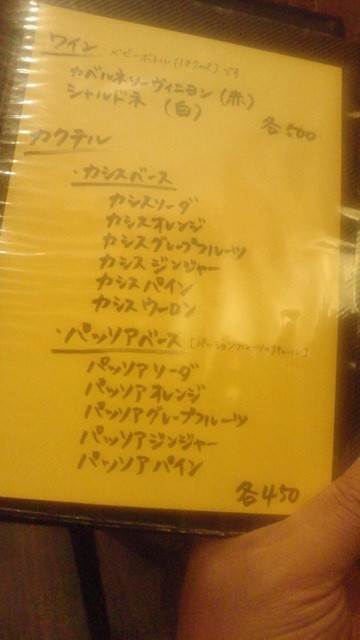 ワイン ベビーボトル(187ml)です
カベルネソーヴィニヨン (赤)
シャルドネ (白)
各500
カクテル
・カシスベース
カシスソーダ
カシスオレンジ
カシスグレープフルーツ
カシスジンジャー
カシスパイン
カシスウーロン
・パッソアベース [パッションフルーツのリキュール]
パッソアソーダ
パッソアオレンジ
パッソアグレープフルーツ
パッソアジンジャー
パッソアパイン
各450